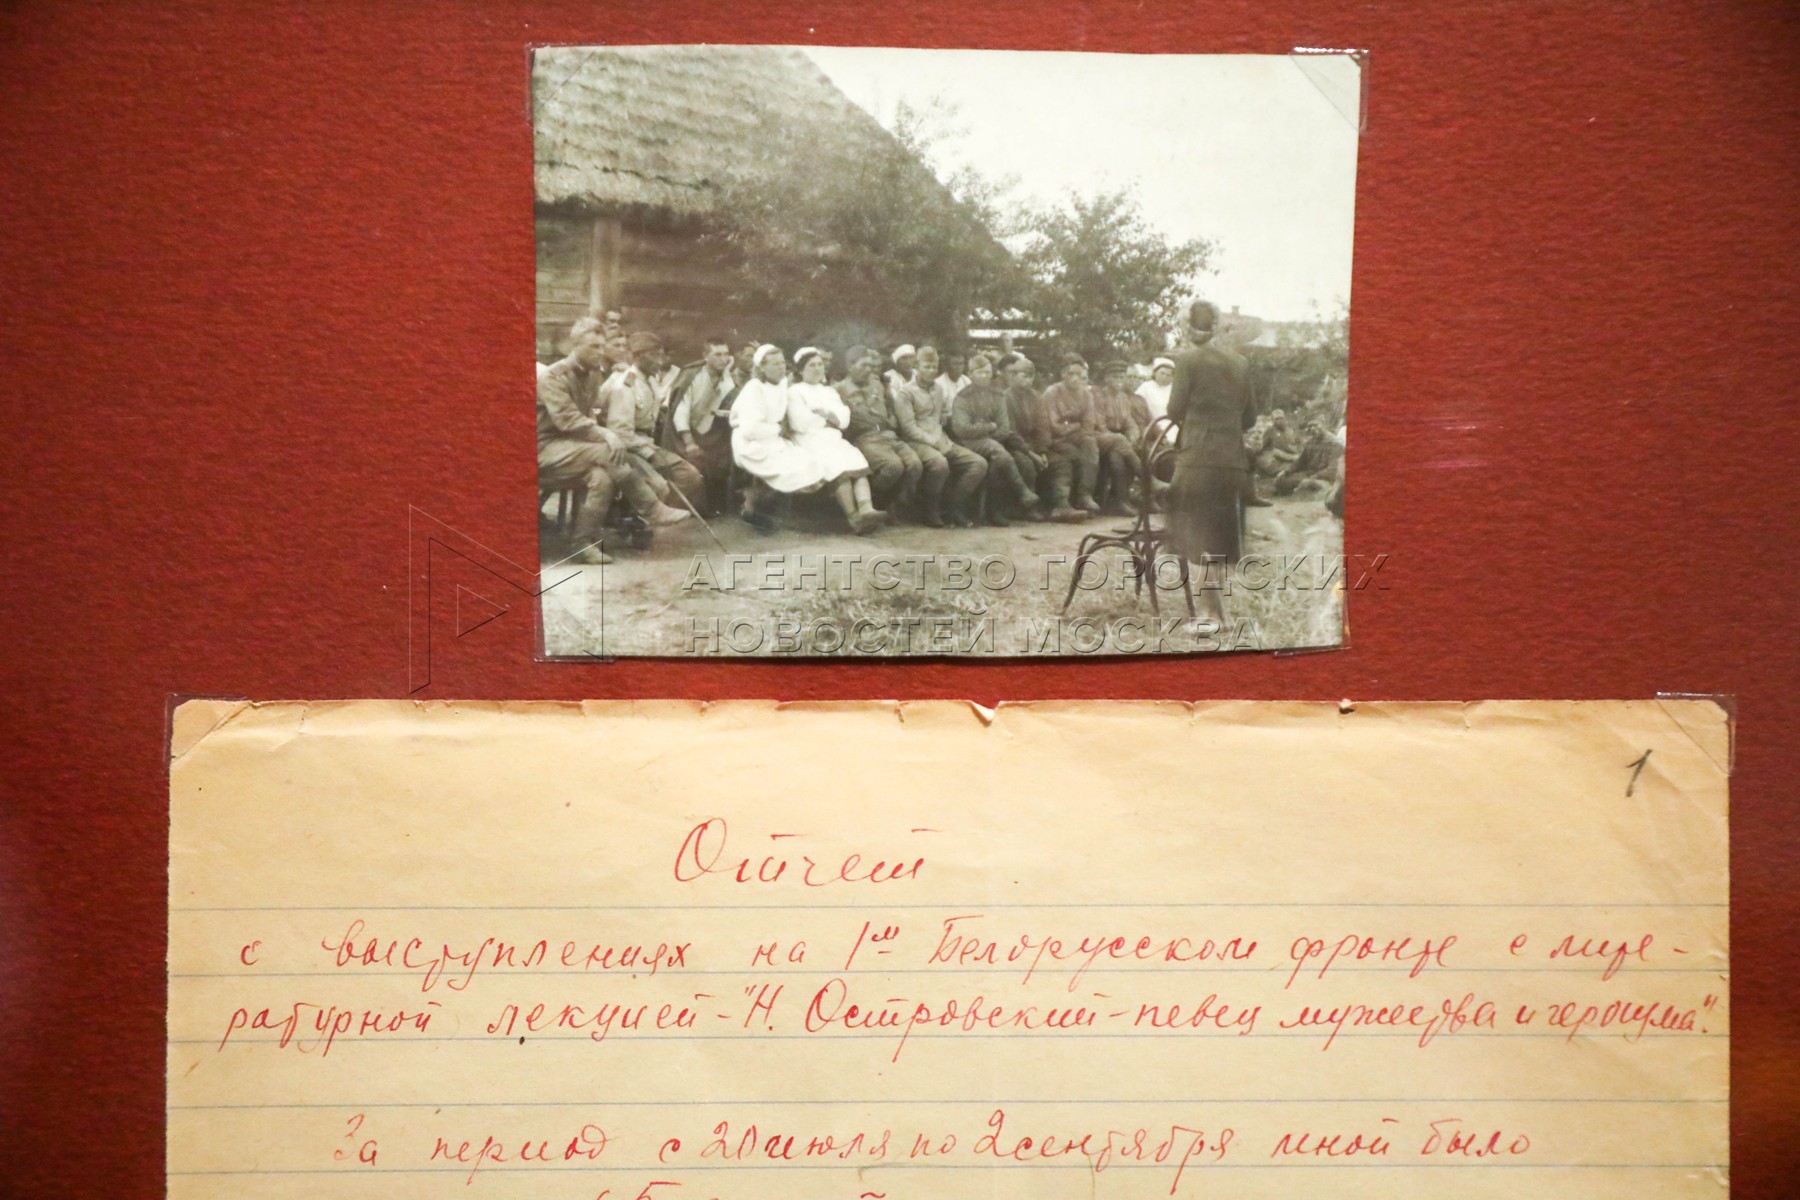 АГЕНТСТВО ГОРОДСКИХ
НОВОСТЕЙ МОСКВА
1
Отчет
о выступлениях на 1м Белорусском фронте с лите-
ратурной лекцией - "Н. Островский - певец мужества и героизма".
За период с 20 июля по 2 сентября мной было